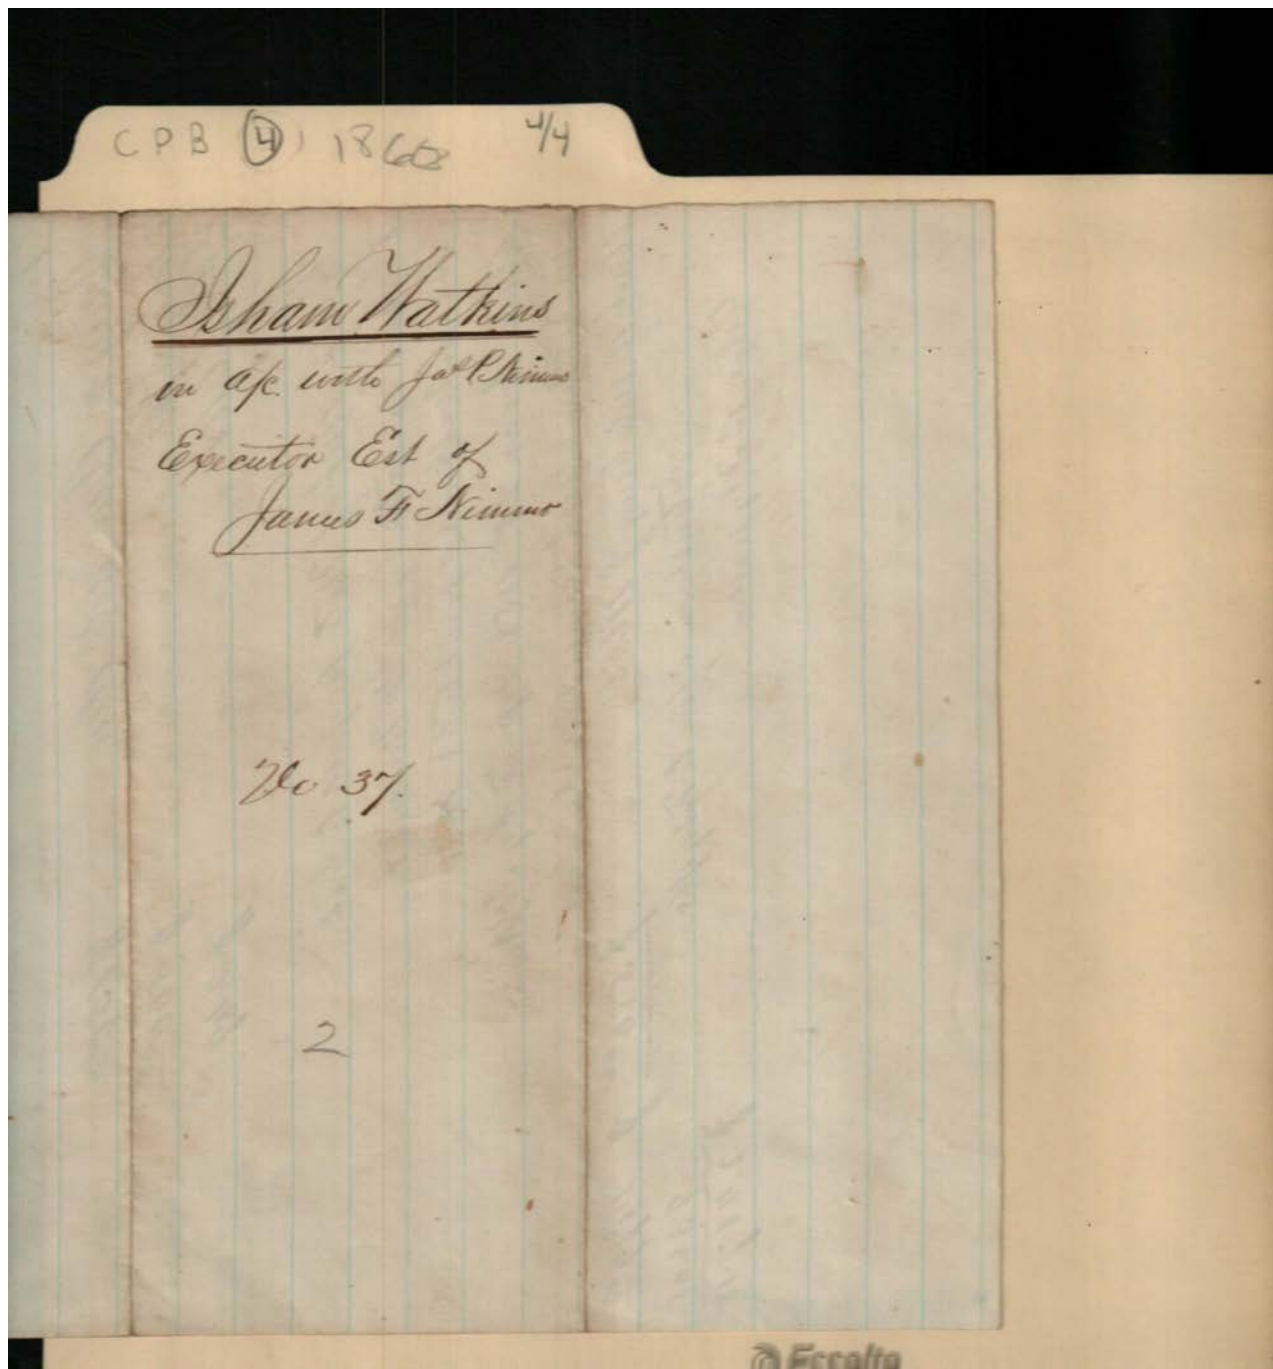 CPB (4) 1868 4/4
Isham Watkins
in a/c. with Jas P Nimmo
Executor Est of
James F Nimmo
Vo 37.
2
Esselte